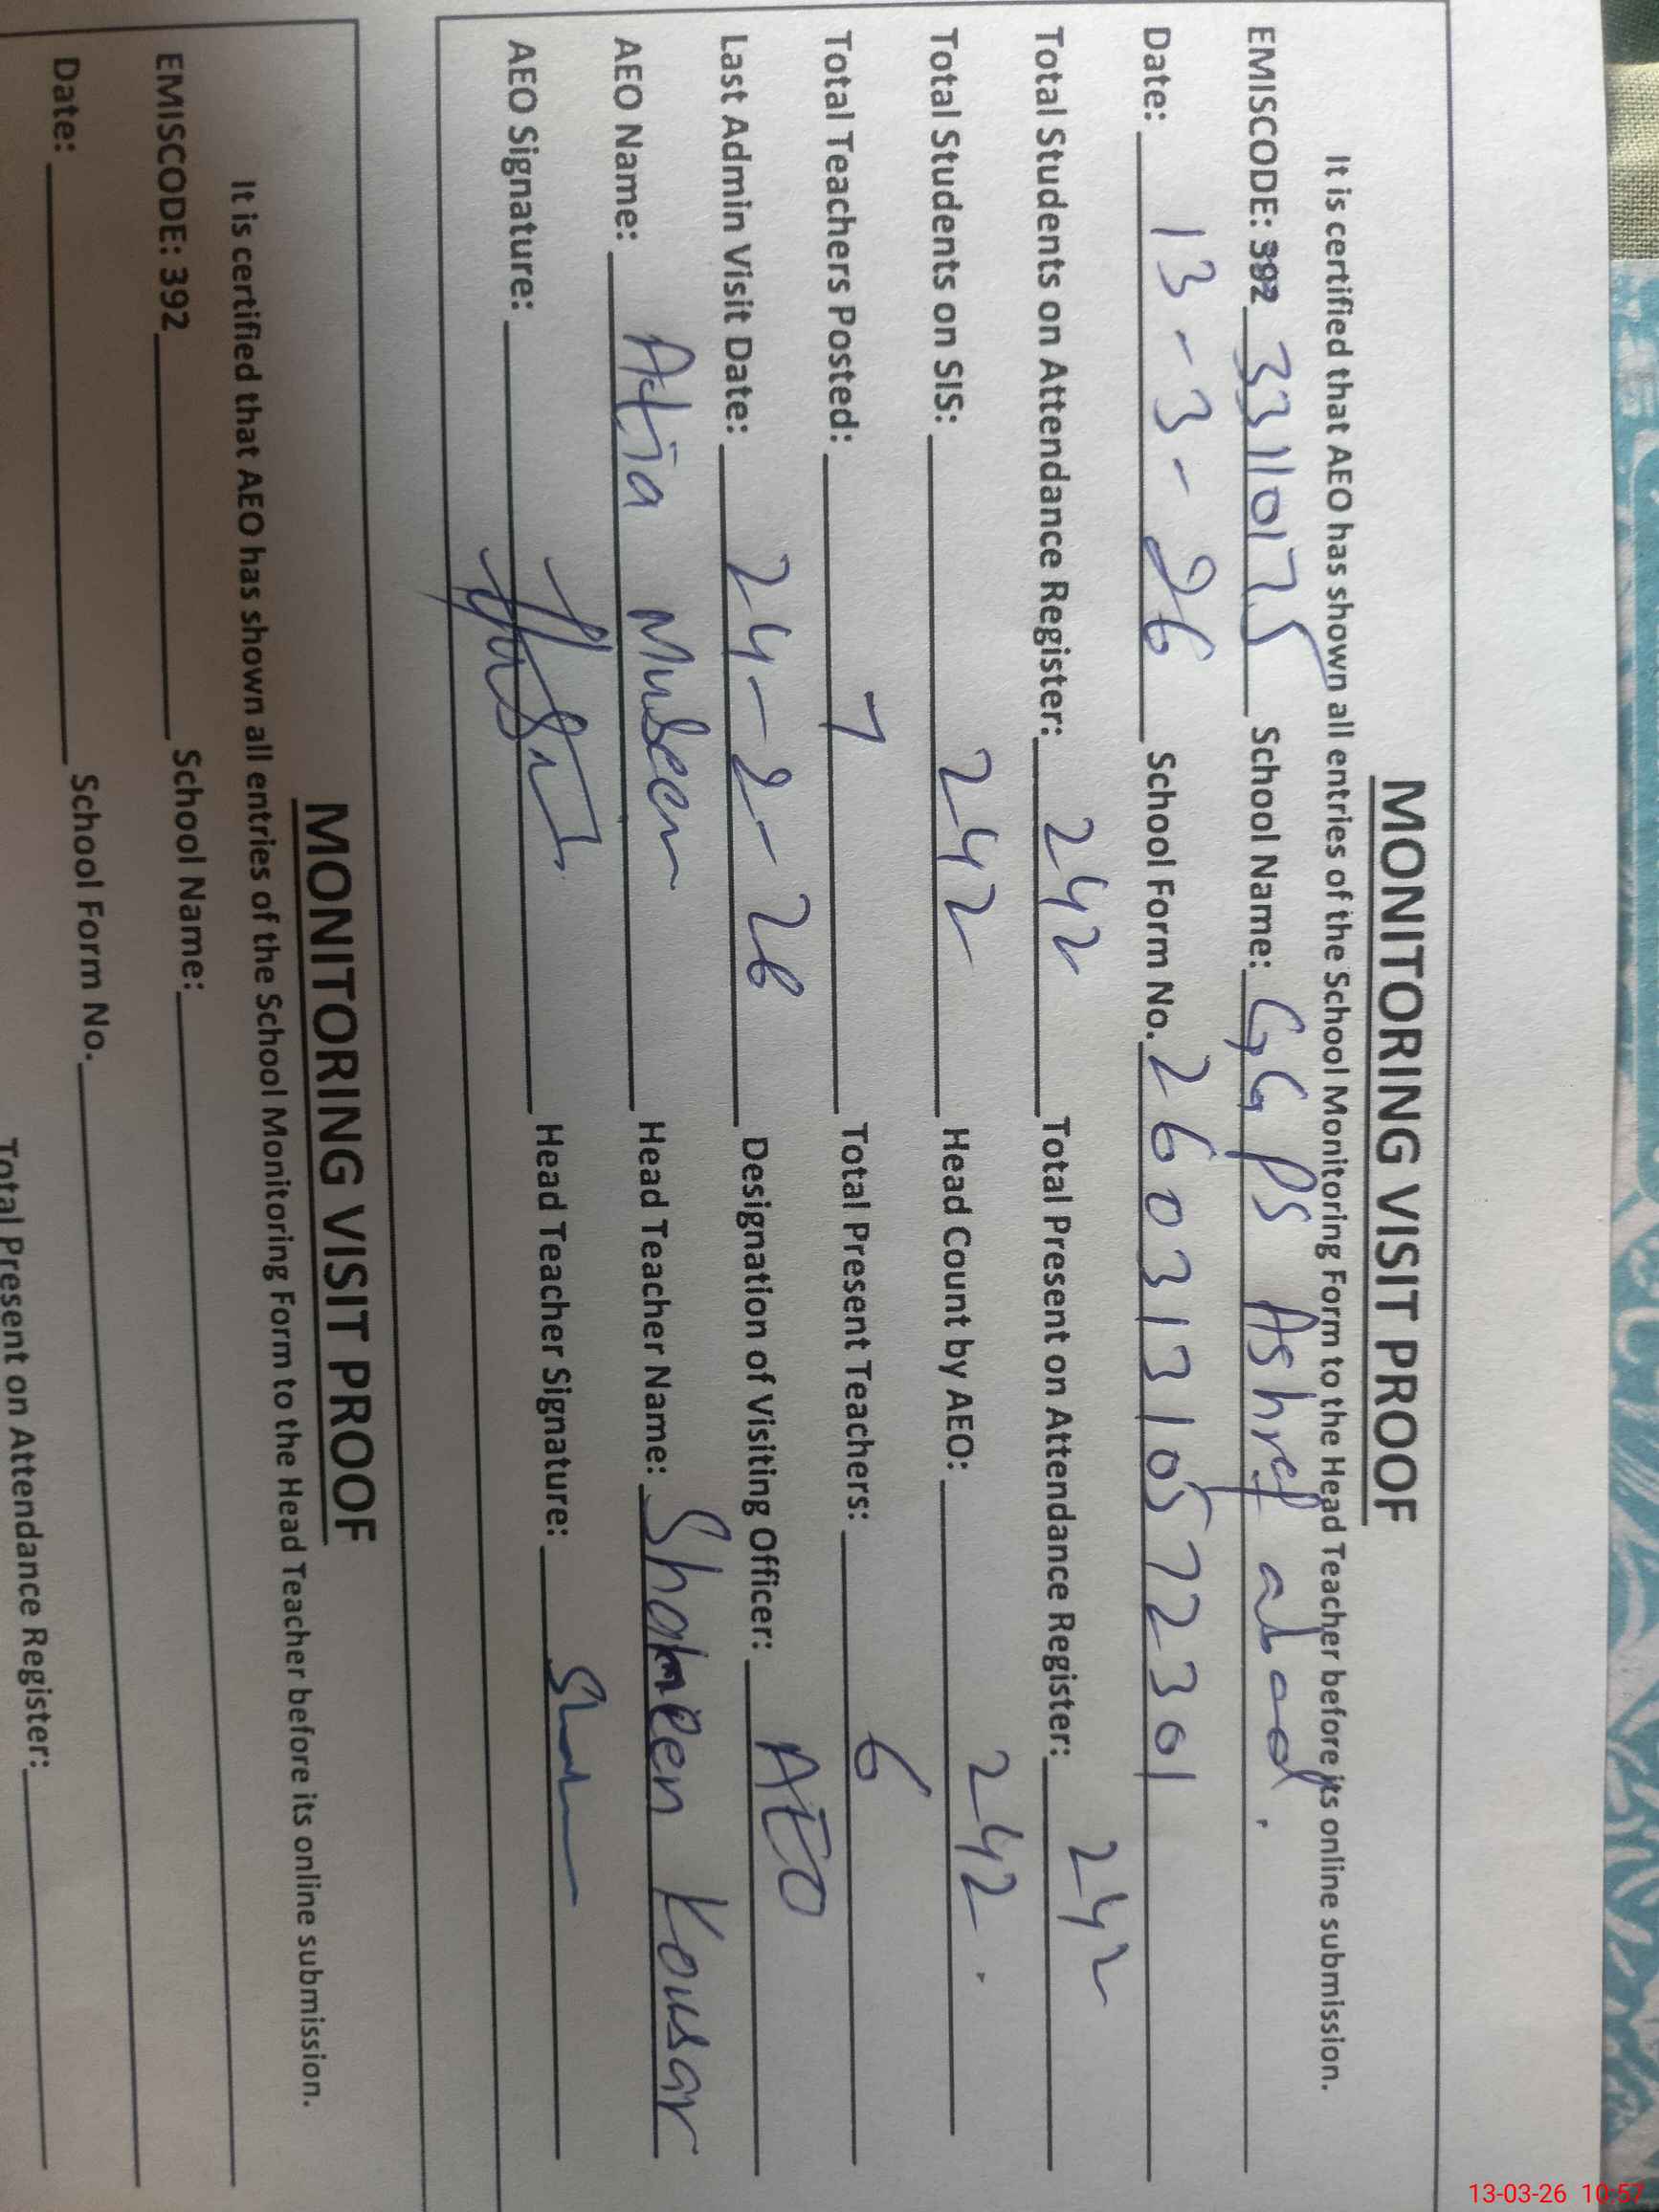 MONITORING VISIT PROOF
It is certified that AEO has shown all entries of the School Monitoring Form to the Head Teacher before its online submission.
EMISCODE: 392 33110175 School Name: GGPS Ashraf abad.
Date: 13-3-26 School Form No. 26031310572301
Total Students on Attendance Register: 242 Total Present on Attendance Register: 242
Total Students on SIS: 242 Head Count by AEO: 242.
Total Teachers Posted: 7 Total Present Teachers: 6
Last Admin Visit Date: 24-2-26 Designation of Visiting Officer: AEO
AEO Name: Atia Mubeen Head Teacher Name: Shaheen Kousar
AEO Signature: Head Teacher Signature:
MONITORING VISIT PROOF
It is certified that AEO has shown all entries of the School Monitoring Form to the Head Teacher before its online submission.
EMISCODE: 392 School Name:
Date: School Form No.
Total Present on Attendance Register:
13-03-26 10:57